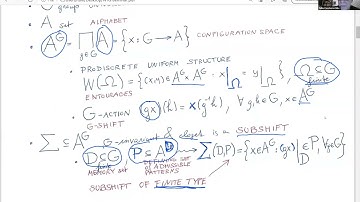 G group
A set ALPHABET
A^G = ∏_{g∈G} A = {x: G → A} CONFIGURATION SPACE
• PRODISCRETE UNIFORM STRUCTURE
W(Ω) = {(x,y) ∈ A^G × A^G : x|_Ω = y|_Ω}, Ω ⊆ G finite
ENTOURAGES
• G-ACTION (gx)(h) = x(g⁻¹h) ∀ g,h ∈ G, x ∈ A^G
G-SHIFT
• Σ ⊆ A^G G-invariant & closed is a SUBSHIFT
D ⊆ G finite, P ⊆ A^D → Σ(D,P) = {x ∈ A^G : (gx)|_D ∈ P, ∀ g ∈ G}
MEMORY SET OF ADMISSIBLE
PATTERNS
SUBSHIFT OF FINITE TYPE